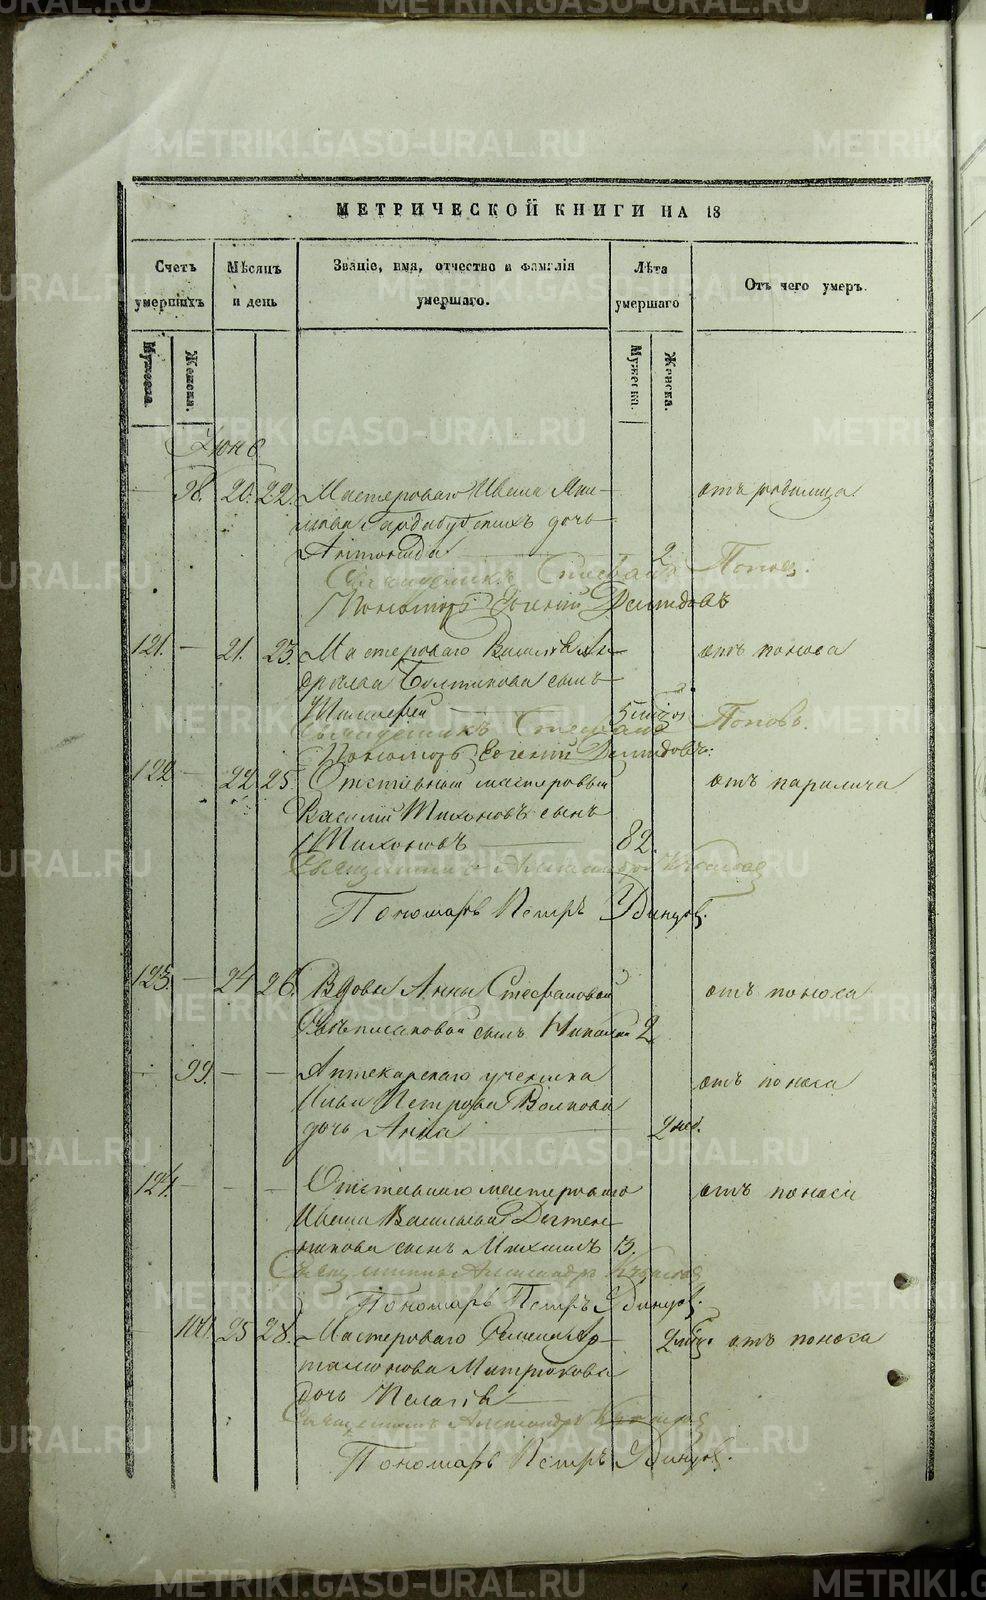 METRIKI.GASO-URAL.RU
МЕТРИЧЕСКОЙ КНИГИ НА 18
Счетъ умершихъ
Мѣсяцъ и день
Званіе, имя, отчество и фамилія умершаго.
Лѣта умершаго
Отъ чего умеръ.
Мужеска.
Женска.
Мужеска.
Женска.
Іюнь
— 98. 20. 22. Мастероваго Ивана
дочь
Антонида — 2
отъ родимца
Священникъ Стефанъ Поповъ.
Пономарь Евгеній Демидовъ
121. — 21. 23. Мастероваго Василья Ан-
дреева сынъ
Тимофей — 5
отъ поноса
Священникъ Стефанъ Поповъ.
Пономарь Евгеній Демидовъ:
122 — 22 25. Отставный мастеровый
Василій Тихоновъ сынъ
Тихоновъ — 82.
отъ паралича
Священникъ Александръ
Пономарь Петръ Удинцов.
123. — 24 26. Вдовы Анны Стефановой
сынъ Николай 2
отъ поноса
— 99. — — Аптекарскаго ученика
Ильи Петрова Волкова
дочь Анна — 2 нед.
отъ поноса
124. — — — Отставнаго мастероваго
Ивана Васильева
сынъ Михаилъ 13.
отъ поноса
Священникъ Александръ
Пономарь Петръ Удинцов.
— 100. 25 28. Мастероваго Семена Ар-
тамонова Митрюкова
дочь Пелагія —
отъ поноса
Священникъ Александръ
Пономарь Петръ Удинцов.